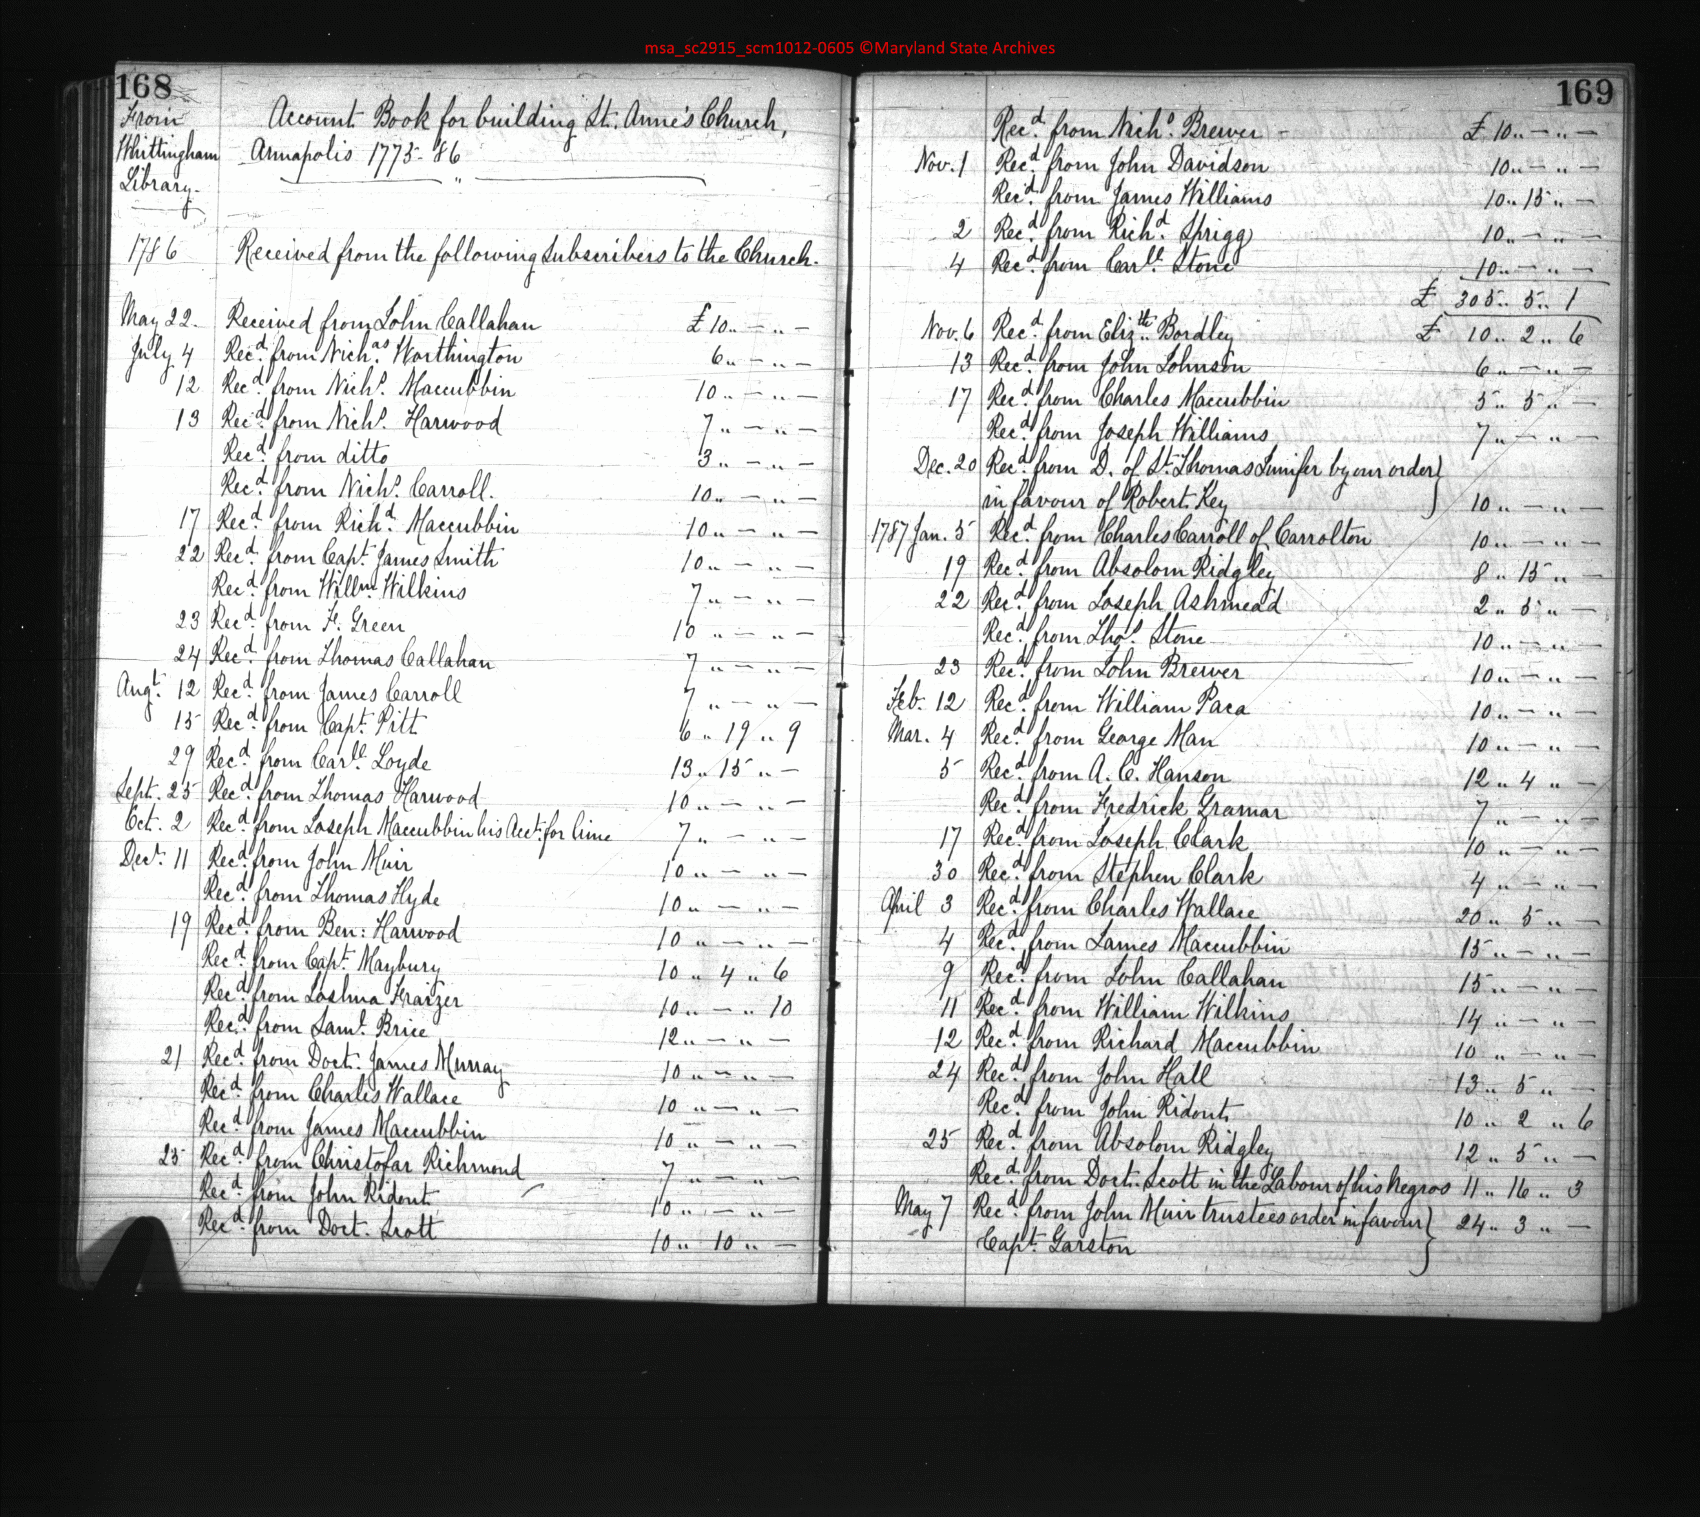 msa_sc2915_scm1012-0605 ©Maryland State Archives
168
From
Whittingham
Library.
Account Book for building St. Anne's Church,
Annapolis 1775-86
1786 Received from the following Subscribers to the Church.
May 22. Received from John Callahan £ 10 „ — „ —
July 4 Rec.d from Nich.as Worthington 6 „ — „ —
12 Rec.d from Nich.s Maccubbin 10 „ — „ —
13 Rec.d from Nich.s Harwood 7 „ — „ —
Rec.d from ditto 3 „ — „ —
Rec.d from Nich.s Carroll. 10 „ — „ —
17 Rec.d from Rich.d Maccubbin 10 „ — „ —
22 Rec.d from Cap.t James Smith 10 „ — „ —
Rec.d from Will.m Wilkins 7 „ — „ —
23 Rec.d from F. Green 10 „ — „ —
24 Rec.d from Thomas Callahan 7 „ — „ —
Aug.t 12 Rec.d from James Carroll 7 „ — „ —
15 Rec.d from Cap.t Pitt 6 „ 19 „ 9
29 Rec.d from Loyde 13 „ 15 „ —
Sept. 25 Rec.d from Thomas Harwood 10 „ — „ —
Oct. 2 Rec.d from Joseph Maccubbin his Acct. for lime 7 „ — „ —
Dec.r 11 Rec.d from John Muir 10 „ — „ —
Rec.d from Thomas Hyde 10 „ — „ —
19 Rec.d from Ben: Harwood 10 „ — „ —
Rec.d from Cap.t Maybury 10 „ 4 „ 6
Rec.d from Joshua Fraizer 10 „ — „ 10
Rec.d from Sam.l Brice 12 „ — „ —
21 Rec.d from Doct. James Murray 10 „ — „ —
Rec.d from Charles Wallace 10 „ — „ —
Rec.d from James Maccubbin 10 „ — „ —
25 Rec.d from Christofar Richmond 7 „ — „ —
Rec.d from John Ridout 10 „ — „ —
Rec.d from Doct. Scott 10 „ 10 „ —
169
Rec.d from Nich.s Brewer - £ 10 „ — „ —
Nov. 1 Rec.d from John Davidson 10 „ — „ —
Rec.d from James Williams 10 „ 15 „ —
2 Rec.d from Rich.d Sprigg 10 „ — „ —
4 Rec.d from Stone 10 „ — „ —
£ 305 „ 5 „ 1
Nov. 6 Rec.d from Eliz.th Bordley £ 10 „ 2 „ 6
13 Rec.d from John Johnson 6 „ — „ —
17 Rec.d from Charles Maccubbin 5 „ 5 „ —
Rec.d from Joseph Williams 7 „ — „ —
Dec. 20 Rec.d from D. of St. Thomas Jenifer by our order
in favour of Robert Key 10 „ — „ —
1787 Jan. 5 Rec.d from Charles Carroll of Carrolton 10 „ — „ —
19 Rec.d from Absolom Ridgley 8 „ 15 „ —
22 Rec.d from Joseph Ashmead 2 „ 5 „ —
Rec.d from Tho.s Stone 10 „ — „ —
23 Rec.d from John Brewer 10 „ — „ —
Feb. 12 Rec.d from William Paca 10 „ — „ —
Mar. 4 Rec.d from George Man 10 „ — „ —
5 Rec.d from A. C. Hanson 12 „ 4 „ —
Rec.d from Fredrick Gramar 7 „ — „ —
17 Rec.d from Joseph Clark 10 „ — „ —
30 Rec.d from Stephen Clark 4 „ — „ —
April 3 Rec.d from Charles Wallace 20 „ 5 „ —
4 Rec.d from James Maccubbin 15 „ — „ —
9 Rec.d from John Callahan 15 „ — „ —
11 Rec.d from William Wilkins 14 „ — „ —
12 Rec.d from Richard Maccubbin 10 „ — „ —
24 Rec.d from John Hall 13 „ 5 „ —
Rec.d from John Ridout 10 „ 2 „ 6
25 Rec.d from Absolom Ridgley 12 „ 5 „ —
Rec.d from Doct. Scott in the Labour of his Negros 11 „ 16 „ 3
May 7 Rec.d from John Muir trustees order in favour
Cap.t Garston 24 „ 3 „ —